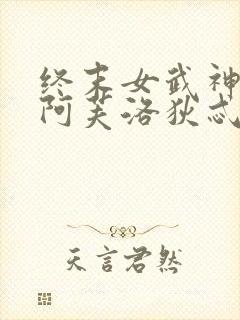 终末女武神
阿芙洛狄忒
天言君然